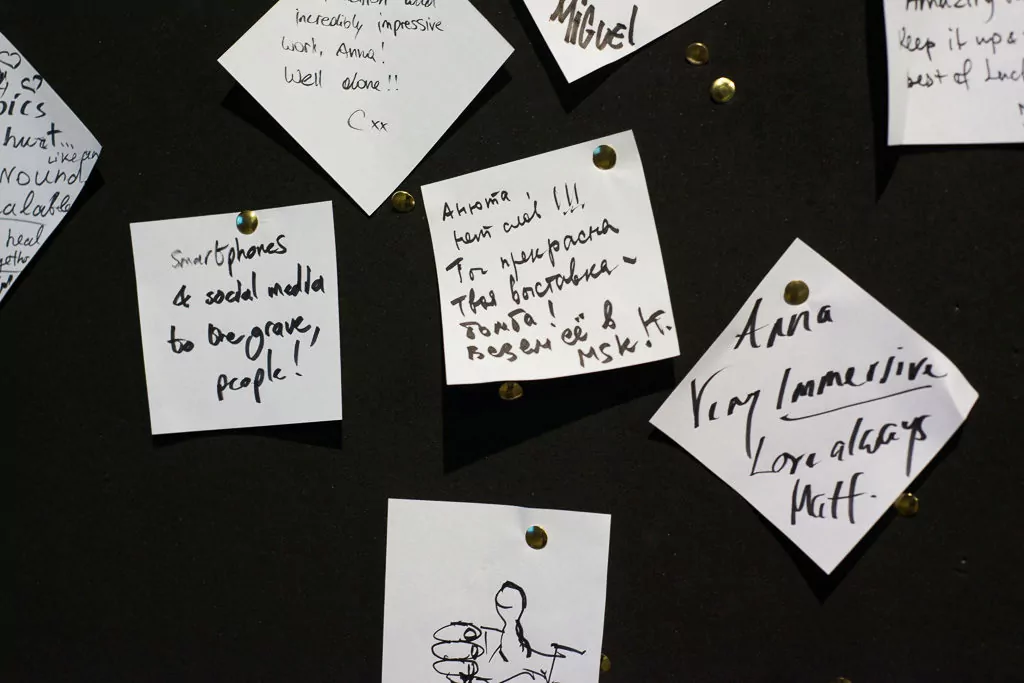 incredibly impressive
work, Anna!
Well done!!
Cxx
MiGuel
keep it up &
best of Luck
pics
hurt...
Like an
WOUND
heal
Smartphones
& social media
to the grave,
people!
Анюта,
нет слов!!!
Ты прекрасна
твоя выставка –
бомба!
везем её в
MSK! К.
Anna
Very Immersive
Love always
Matt.